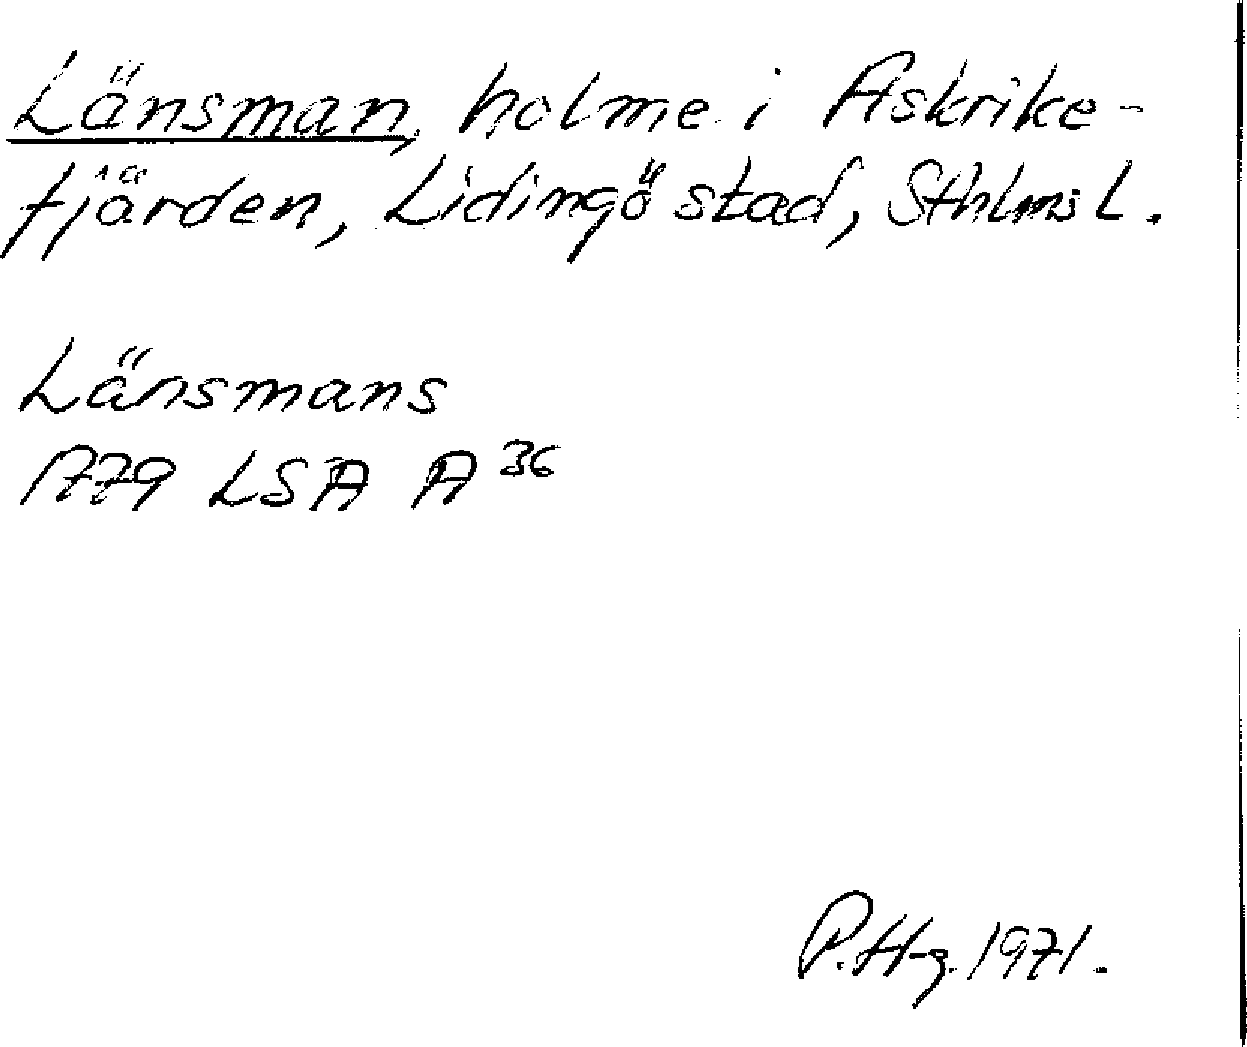 Länsman, holme i Askrike-
fjärden, Lidingö stad, Sthlms L.
Länsmans
1779 LSA A 36
P.H-g. 1971.